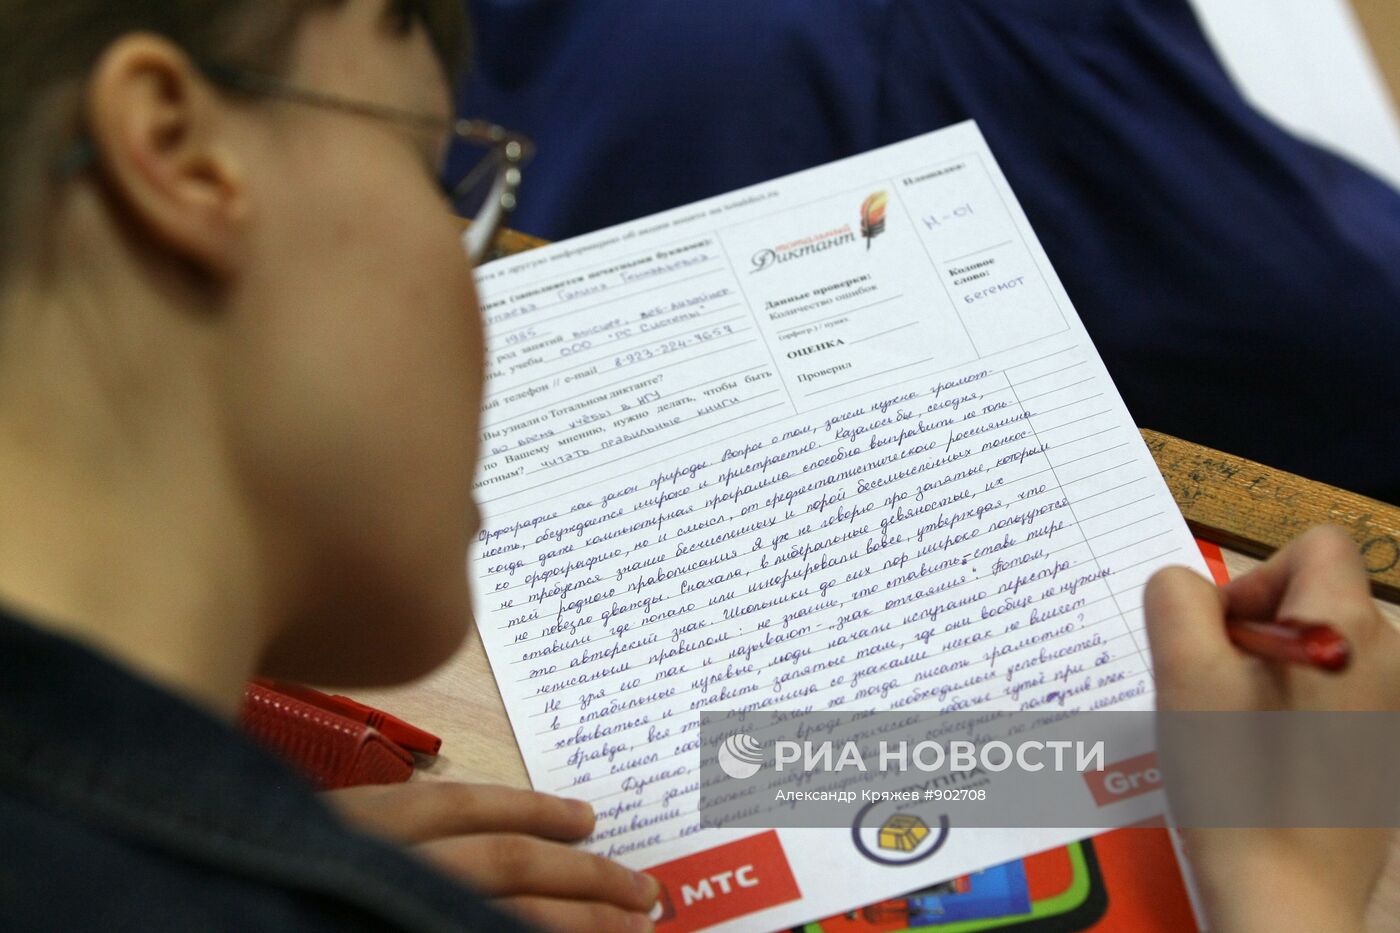 и другую информацию об акции ищите на totaldict.ru
(заполняется печатными буквами):
Галина Геннадьевна
1985
род занятий высшее, веб-дизайнер
учебы ООО "РС Системы"
телефон // e-mail 8-923-224-7657
Вы узнали о Тотальном диктанте?
во время учёбы в НГУ
по Вашему мнению, нужно делать, чтобы быть
читать правильные книги
тотальный
Диктант
Данные проверки:
Количество ошибок
(орфогр.) / пункт.
ОЦЕНКА
Проверил
Площадка:
Н-01
Кодовое
слово:
бегемот
Орфография как закон природы. Вопрос о том, зачем нужна грамот-
ность, обсуждается широко и пристрастно. Казалось бы, сегодня,
когда даже компьютерная программа способна выправить не толь-
ко орфографию, но и смысл, от среднестатистического россиянина
не требуется знание бесчисленных и порой бессмысленных тонкос-
тей родного правописания. Я уж не говорю про запятые, которым
не повезло дважды. Сначала, в либеральные девяностые, их
ставили где попало или игнорировали вовсе, утверждая, что
это авторский знак. Школьники до сих пор широко пользуются
неписаным правилом: не знаешь, что ставить - ставь тире.
Не зря его так и называют - "знак отчаяния". Потом,
в стабильные нулевые, люди начали испуганно перестра-
ховываться и ставить запятые там, где они вообще не нужны.
Правда, вся эта путаница со знаками никак не влияет
на смысл сообщения. Зачем же тогда писать грамотно?
Думаю, это что-то вроде тех необходимых условностей,
которые заменяют собачье чутьё при об-
нюхивании. Сколько-нибудь собеседник, получив элек-
тронное сообщение, по тысяче мелочей
РИА НОВОСТИ
Александр Кряжев #902708
МТС
ГРУППА
Gro